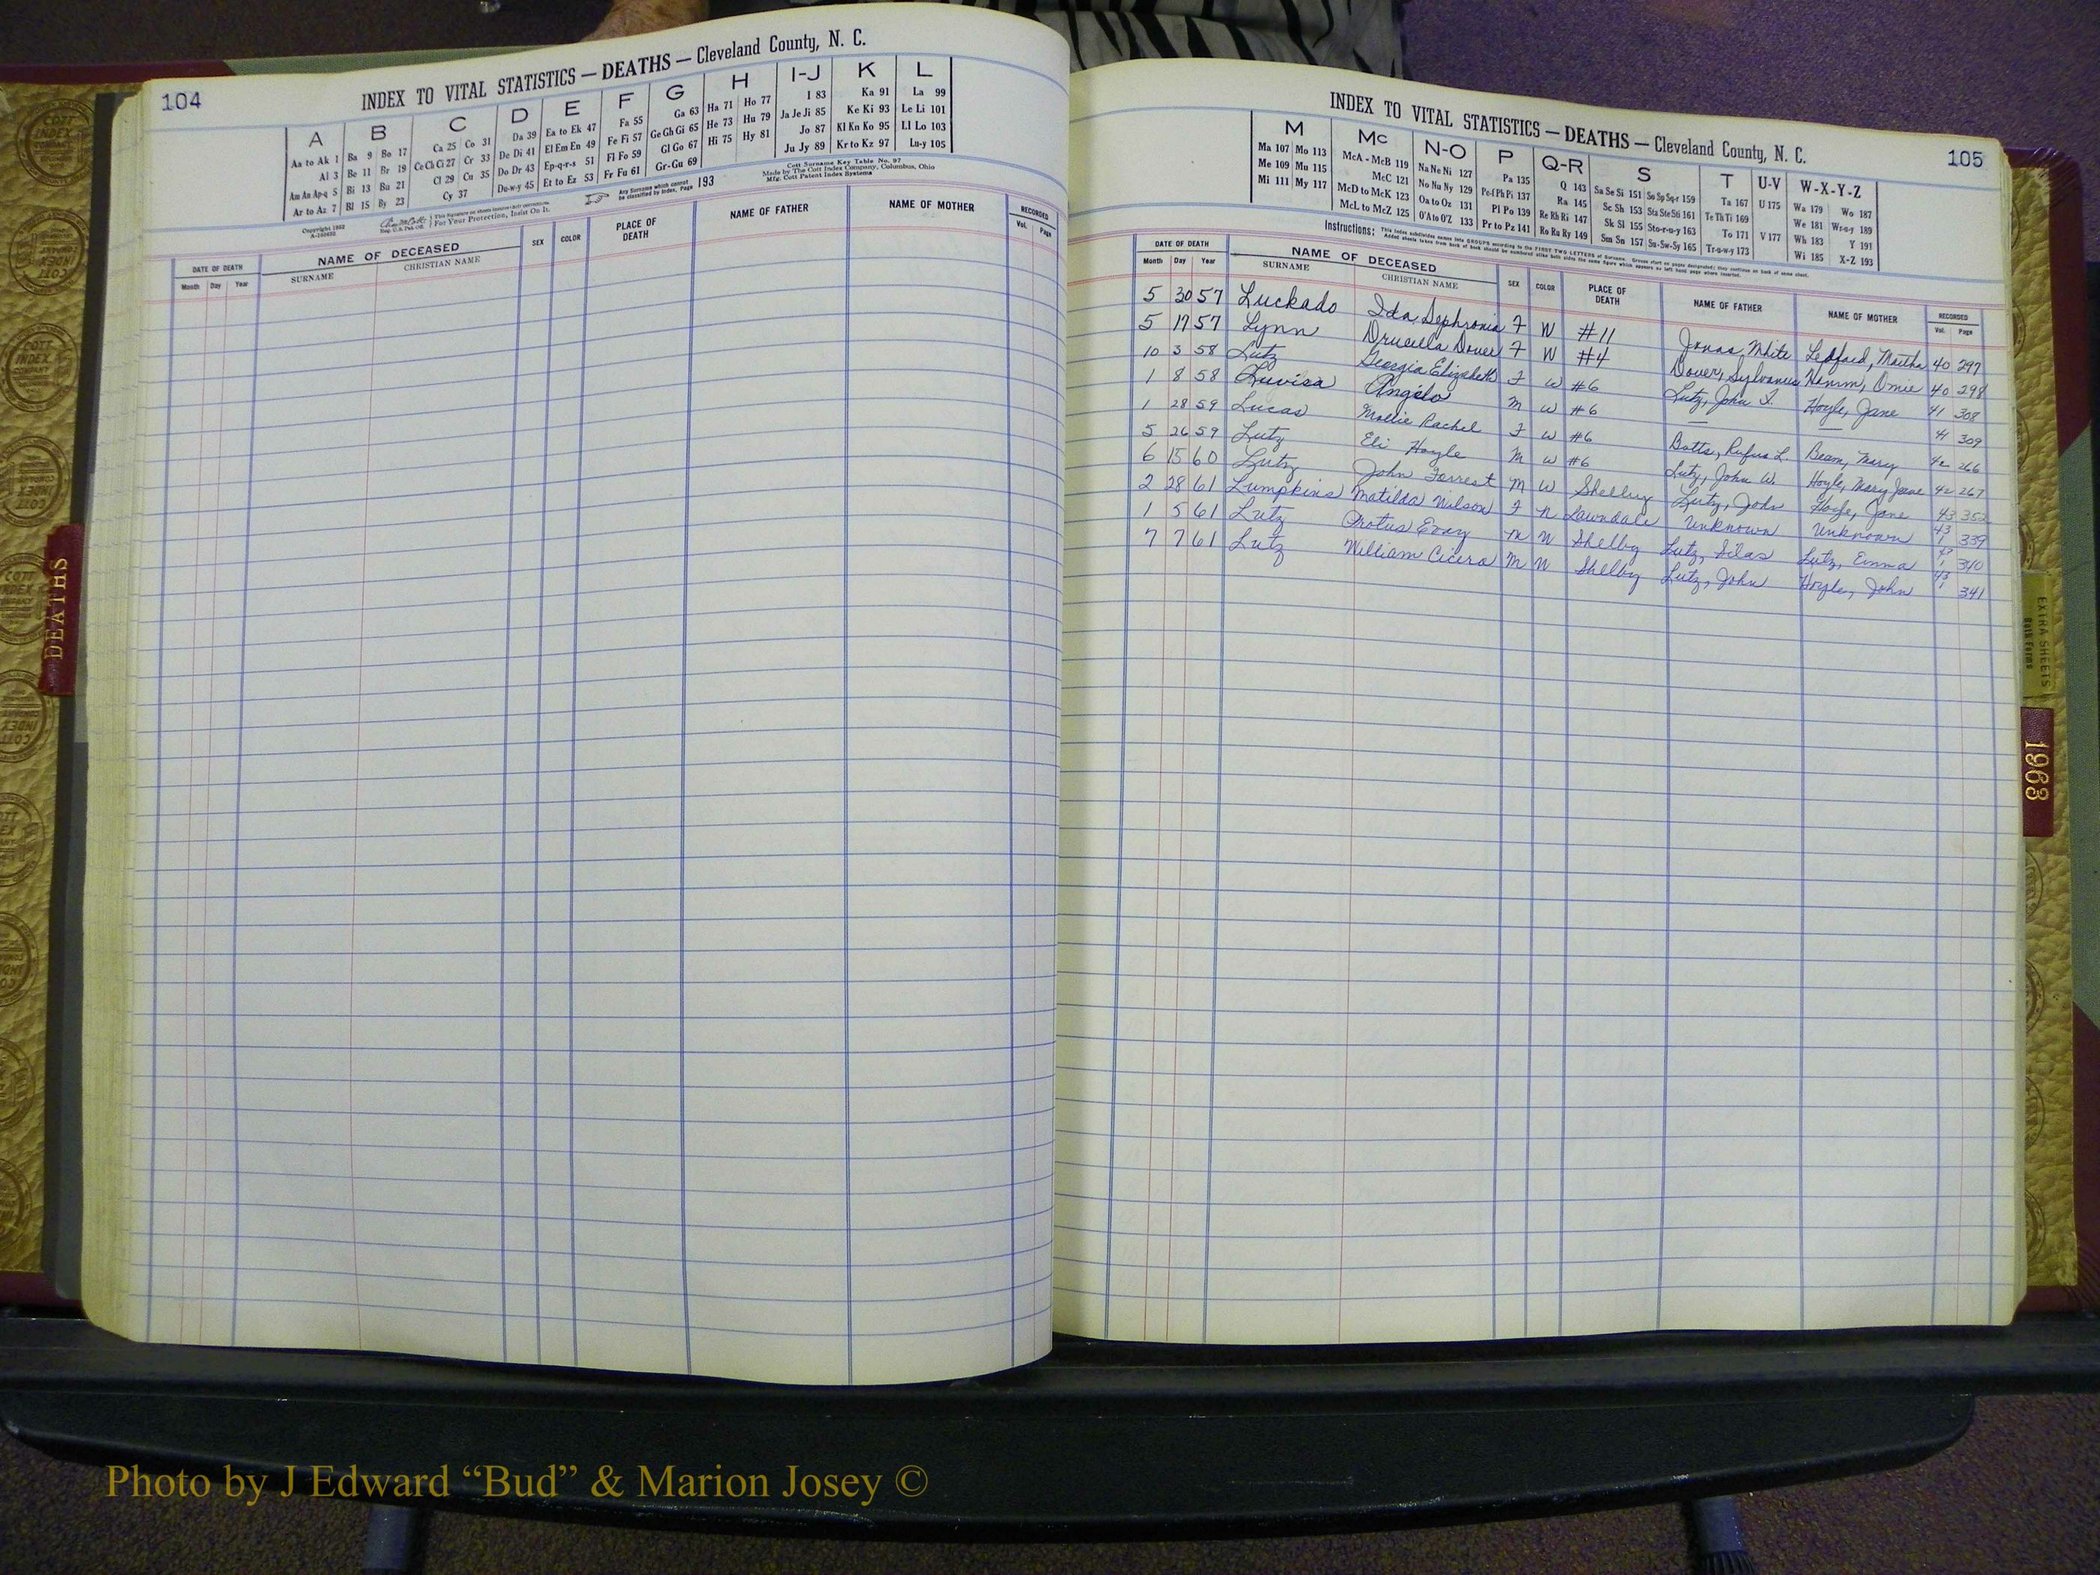 104
INDEX TO VITAL STATISTICS — DEATHS — Cleveland County, N. C.
A B C D E F G H I-J K L
Aa to Ak 1 Ba 9 Bo 17 Ca 25 Co 31 Da 39 Ea to Ek 47 Fa 55 Ga 63 Ha 71 Ho 77 I 83 Ka 91 La 99
Al 3 Be 11 Br 19 Ce Ch Ci 27 Cr 33 De Di 41 El Em En 49 Fe Fi 57 Ge Gh Gi 65 He 73 Hu 79 Ja Je Ji 85 Ke Ki 93 Le Li 101
Am An Ap-q 5 Bi 13 Bu 21 Cl 29 Cu 35 Do Dr 43 Ep-q-r-s 51 Fl Fo 59 Gl Go 67 Hi 75 Hy 81 Jo 87 Kl Kn Ko 95 Ll Lo 103
Ar to Az 7 Bl 15 By 23 Cy 37 Du-w-y 45 Et to Ez 53 Fr Fu 61 Gr-Gu 69 Ju Jy 89 Kr to Kz 97 Lu-y 105
Copyright 1952
A-160692
For Your Protection, Insist On It.
Any Surname which cannot be classified by Index, Page 193
Cott Surname Key Table No. 97
Made by The Cott Index Company, Columbus, Ohio
Mfg. Cott Patent Index Systems
DATE OF DEATH NAME OF DECEASED SEX COLOR PLACE OF DEATH NAME OF FATHER NAME OF MOTHER RECORDED
Month Day Year SURNAME CHRISTIAN NAME Vol. Page
INDEX TO VITAL STATISTICS — DEATHS — Cleveland County, N. C.
105
M Mc N-O P Q-R S T U-V W-X-Y-Z
Ma 107 Mo 113 McA - McB 119 Na Ne Ni 127 Pa 135 Q 143 Sa Se Si 151 So Sp Sq-r 159 Ta 167 U 175 Wa 179 Wo 187
Me 109 Mu 115 McC 121 No Nu Ny 129 Pe-f Ph Pi 137 Ra 145 Sc Sh 153 Sta Ste Sti 161 Te Th Ti 169 We 181 Wr-u-y 189
Mi 111 My 117 McD to McK 123 Oa to Oz 131 Pl Po 139 Re Rh Ri 147 Sk Sl 155 Sto-r-u-y 163 To 171 V 177 Wh 183 Y 191
McL to McZ 125 O'A to O'Z 133 Pr to Pz 141 Ro Ru Ry 149 Sm Sn 157 Su-Sw-Sy 165 Tr-u-w-y 173 Wi 185 X-Z 193
Instructions: This Index subdivides names into GROUPS according to the FIRST TWO LETTERS of Surname. Groups start on pages designated; they continue on back of same sheet.
Added sheets taken from back of book should be numbered alike both sides the same figure which appears on left hand page where inserted.
DATE OF DEATH NAME OF DECEASED SEX COLOR PLACE OF DEATH NAME OF FATHER NAME OF MOTHER RECORDED
Month Day Year SURNAME CHRISTIAN NAME Vol. Page
5 30 57 Luckado Ida Sephronia F W #11 Jonas, White Ledford, Martha 40 297
5 17 57 Lynn Drucilla Dover F W #4 Dover, Sylvanus Omie 40 298
10 3 58 Lutz Georgia Elizabeth F W #6 Lutz, John Hoyle, Jane 41 308
1 8 58 Luvisa Angelo M W #6 — — 41 309
1 28 59 Lucas Mollie Rachel F W #6 Botts, Rufus L. Beam, Mary 42 266
5 26 59 Lutz Eli Hoyle M W #6 Lutz, John W. Hoyle, Mary Jane 42 267
6 15 60 Lutz John Forrest M W Shelby Lutz, John Hoyle, Jane 43 352
2 28 61 Lumpkins Matilda Wilson F N Lawndale Unknown Unknown 43 339
1 5 61 Lutz Protus Evay M W Shelby Lutz, Silas Lutz, Emma 43 340
7 7 61 Lutz William Cicero M W Shelby Lutz, John Hoyle, John 43 341
DEATHS
EXTRA SHEETS
Both Forms
1963
COTT INDEX COMPANY
Photo by J Edward “Bud” & Marion Josey ©